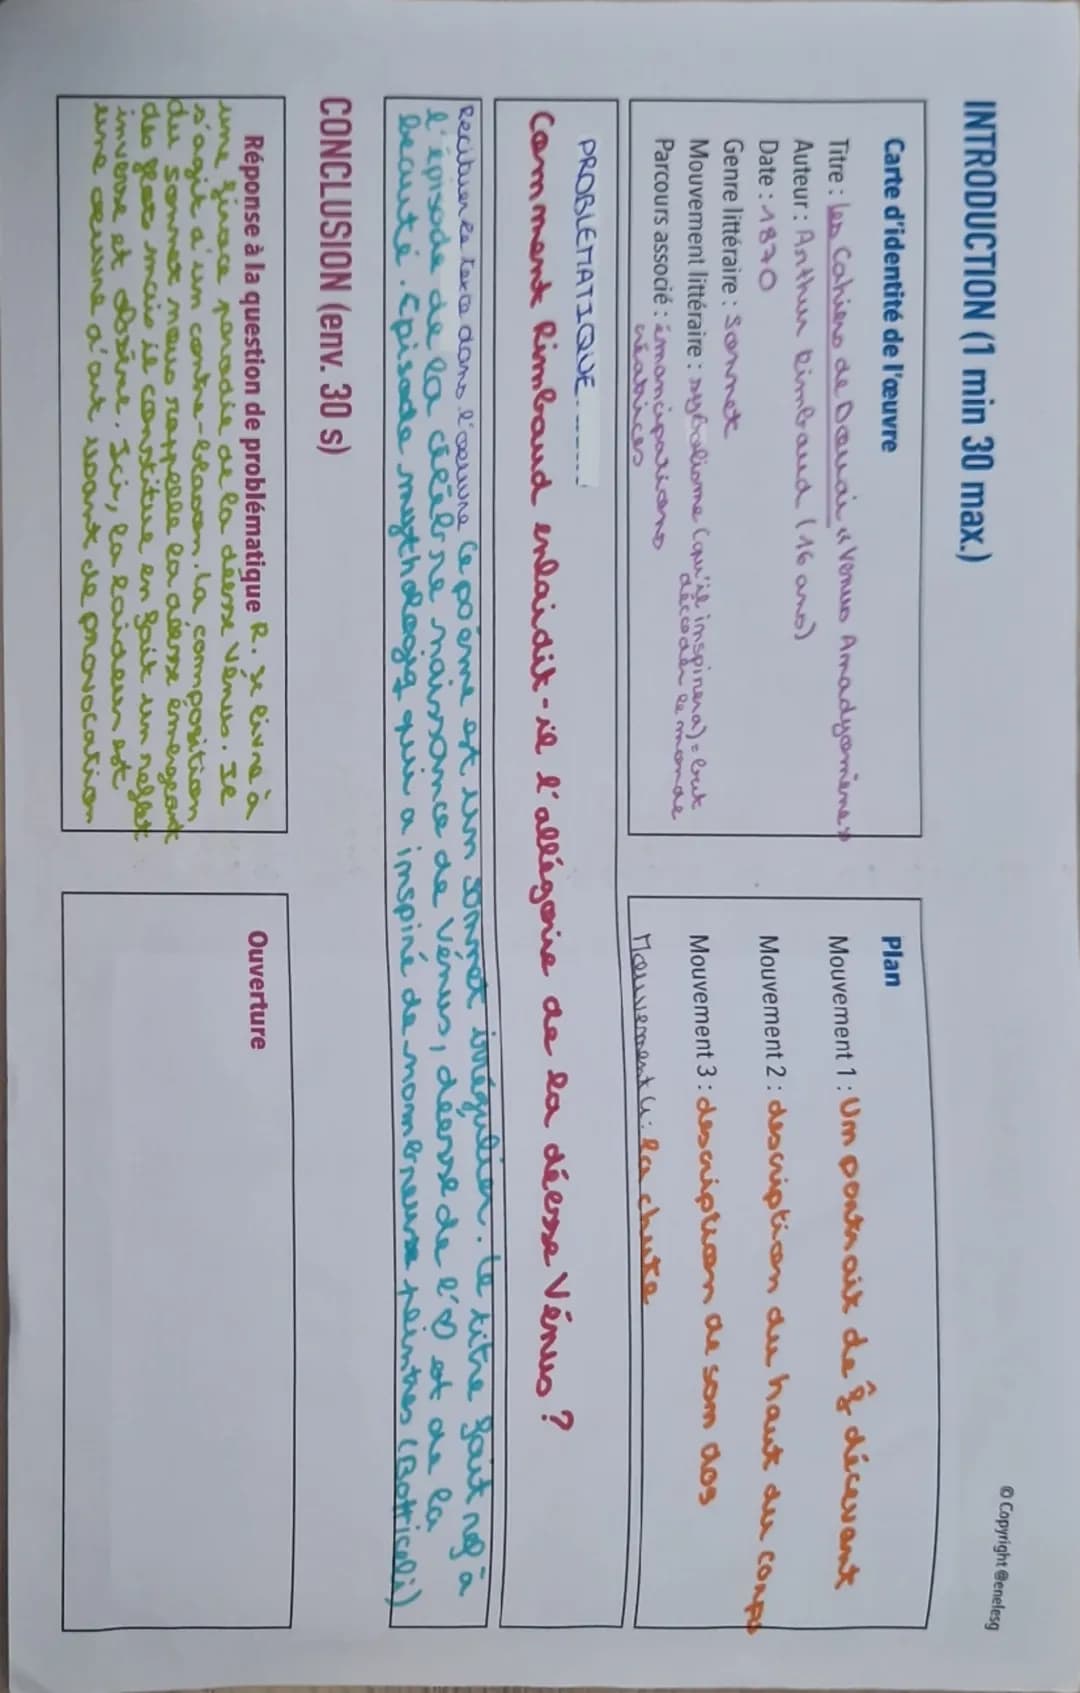 © Copyright @enelesg
INTRODUCTION (1 min 30 max.)
Carte d'identité de l'œuvre
Titre : Les Cahiers de Douai « Venus Anadyomène »
Auteur : Arthur Rimbaud (16 ans)
Date : 1870
Genre littéraire : Sonnet
Mouvement littéraire : sybolisme (qu'il inspirera) = but
décoder le monde
Parcours associé : émancipations
créatrices
Plan
Mouvement 1 : Un portrait de f décevant
Mouvement 2 : description du haut du corps
Mouvement 3 : description de son dos
Mouvement 4 : la chute
PROBLEMATIQUE
Comment Rimbaud enlaidit-il l'allégorie de la déesse Vénus ?
Recituer le texte dans l'oeuvre Ce poème est un sonnet irrégulier. Le titre fait ref à
l'épisode de la célèbre naissance de Vénus, déesse de l'♡ et de la
beauté. Episode mythologiq qui a inspiré de nombreuse peintres (Botticeli)
CONCLUSION (env. 30 s)
Réponse à la question de problématique R. se livre à
une féroce parodie de la déesse Vénus. Il
s'agit d'un contre-blason. La composition
du sonnet nous rappelle la déesse émergeant
des flots mais il constitue en fait un reflet
inverse et obscène. Ici, la laideur est
une oeuvre d'art usant de provocation
Ouverture